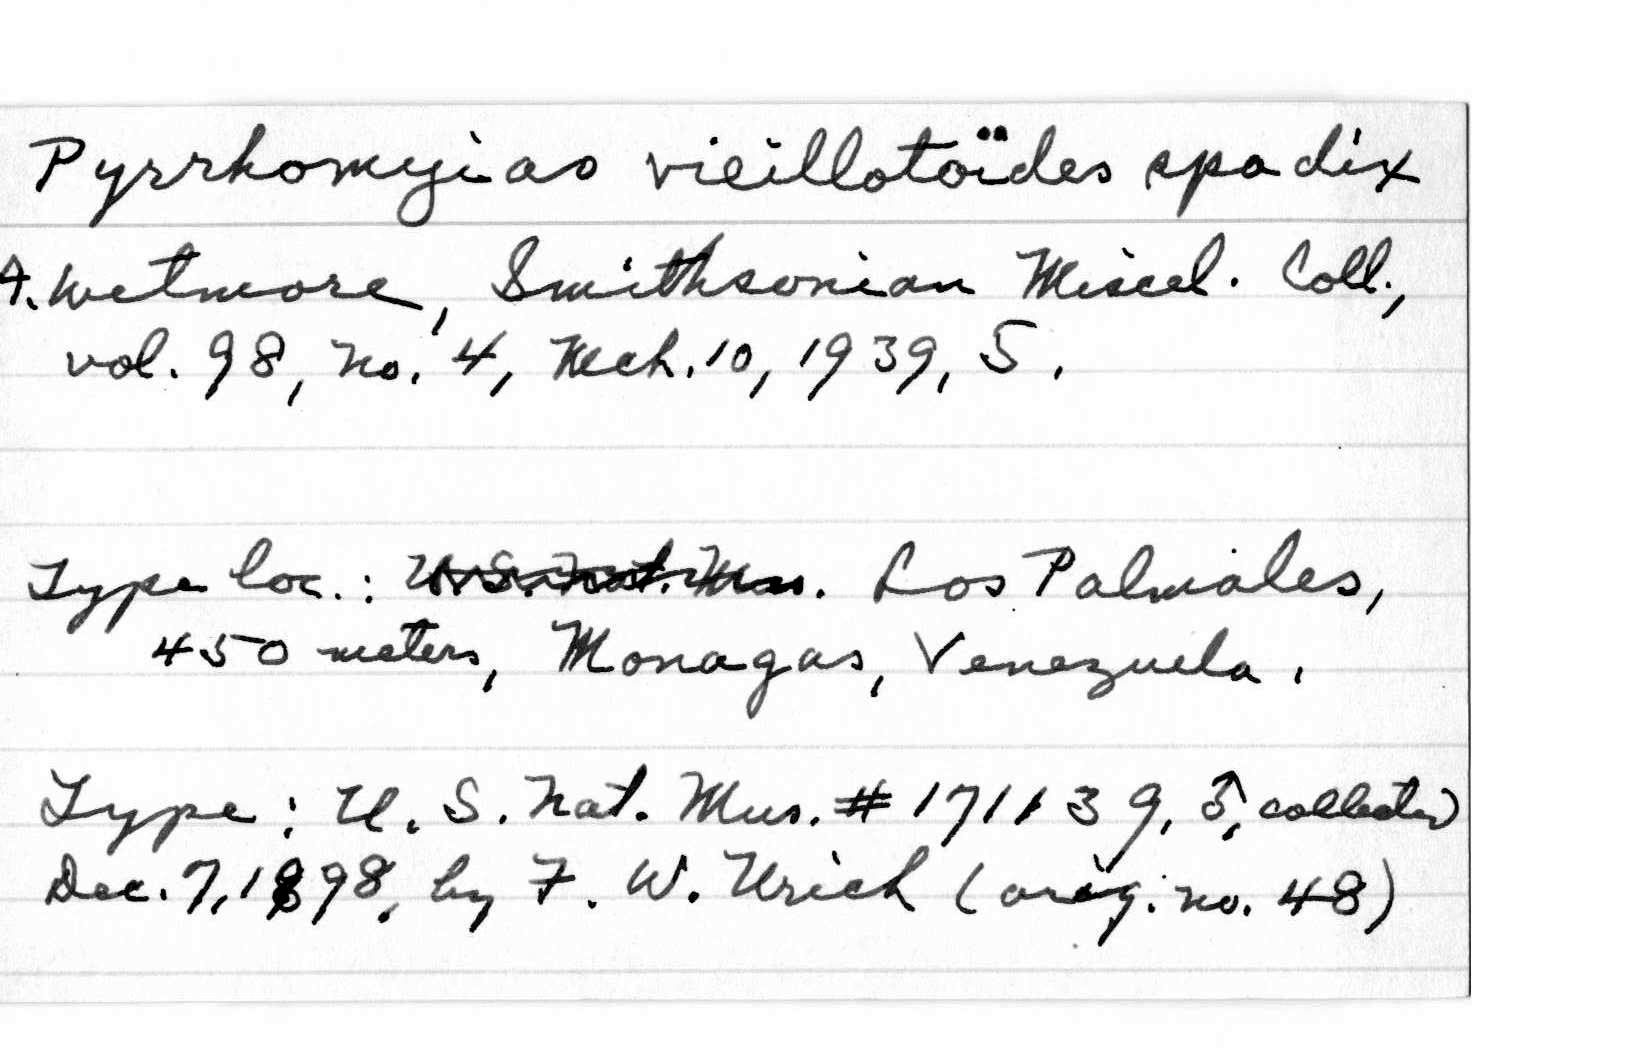 Pyrrhomyias vieillotoïdes spadix
A. Wetmore, Smithsonian Miscel. Coll.,
vol. 98, no. 4, Mch. 10, 1939, 5.
Type loc.: U.S. Nat. Mus. Los Palmales,
450 meters, Monagas, Venezuela.
Type: U. S. Nat. Mus. # 171139, ♂, collected
Dec. 7, 1898, by F. W. Urich (orig. no. 48)